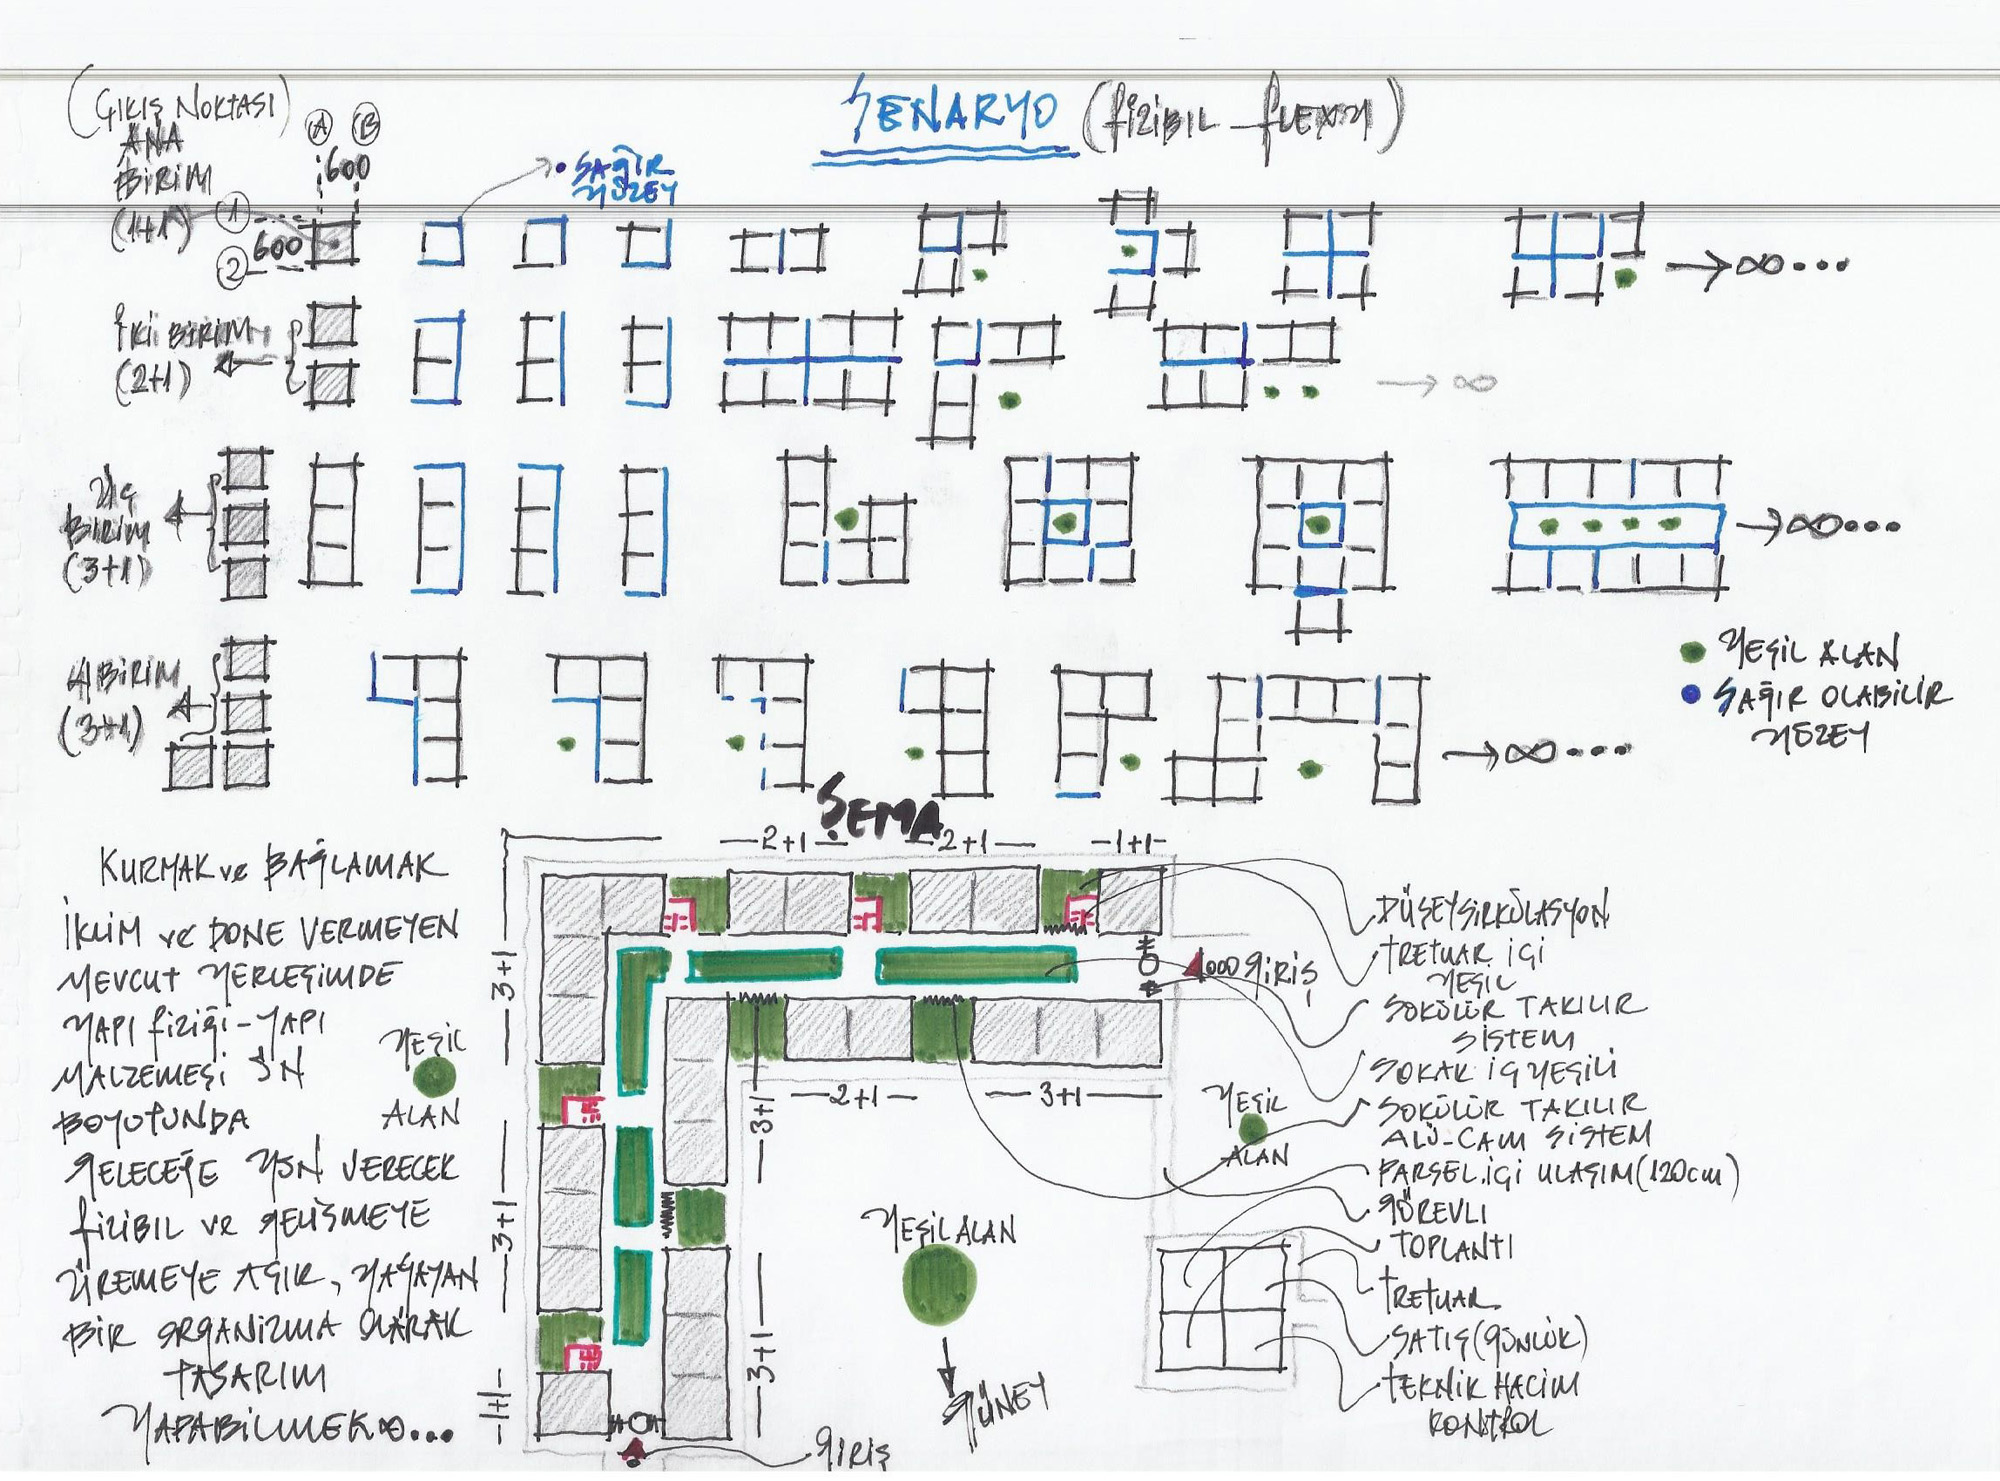 (ÇIKIŞ NOKTASI)
ANA
BİRİM
(1+1)
A B
600
1
2
600
SENARYO (FİZİBIL-FLEXY)
• SAĞIR
YÜZEY
→ ∞...
İKİ BİRİM
(2+1)
→ ∞
ÜÇ
BİRİM
(3+1)
→ ∞...
4 BİRİM
(3+1)
→ ∞...
YEŞİL ALAN
SAĞIR OLABİLİR
YÜZEY
ŞEMA
2+1
2+1
1+1
3+1
3+1
1+1
3+1
3+1
2+1
3+1
KURMAK ve BAĞLAMAK
İKLİM ve DONE VERMEYEN
MEVCUT YERLEŞİMDE
YAPI FİZİĞİ-YAPI
MALZEMESİ ÖN
BOYUTUNDA
GELECEĞE YÖN VERECEK
FİZİBIL ve GELİŞMEYE
ÜREMEYE AÇIK, YAŞAYAN
BİR ORGANİZMA OLARAK
TASARIM
YAPABİLMEK∞...
YEŞİL
ALAN
YEŞİL
ALAN
YEŞİL ALAN
GÜNEY
GİRİŞ
GİRİŞ
DÜŞEY SİRKÜLASYON
TRETUAR İÇİ
YEŞİL
SÖKÜLÜR TAKILIR
SİSTEM
SOKAK İÇ YEŞİLİ
SÖKÜLÜR TAKILIR
ALÜ-CAM SİSTEM
PARSEL İÇİ ULAŞIM (120cm)
GÖREVLİ
TOPLANTI
TRETUAR
SATIŞ (GÜNLÜK)
TEKNİK HACİM
KONTROL